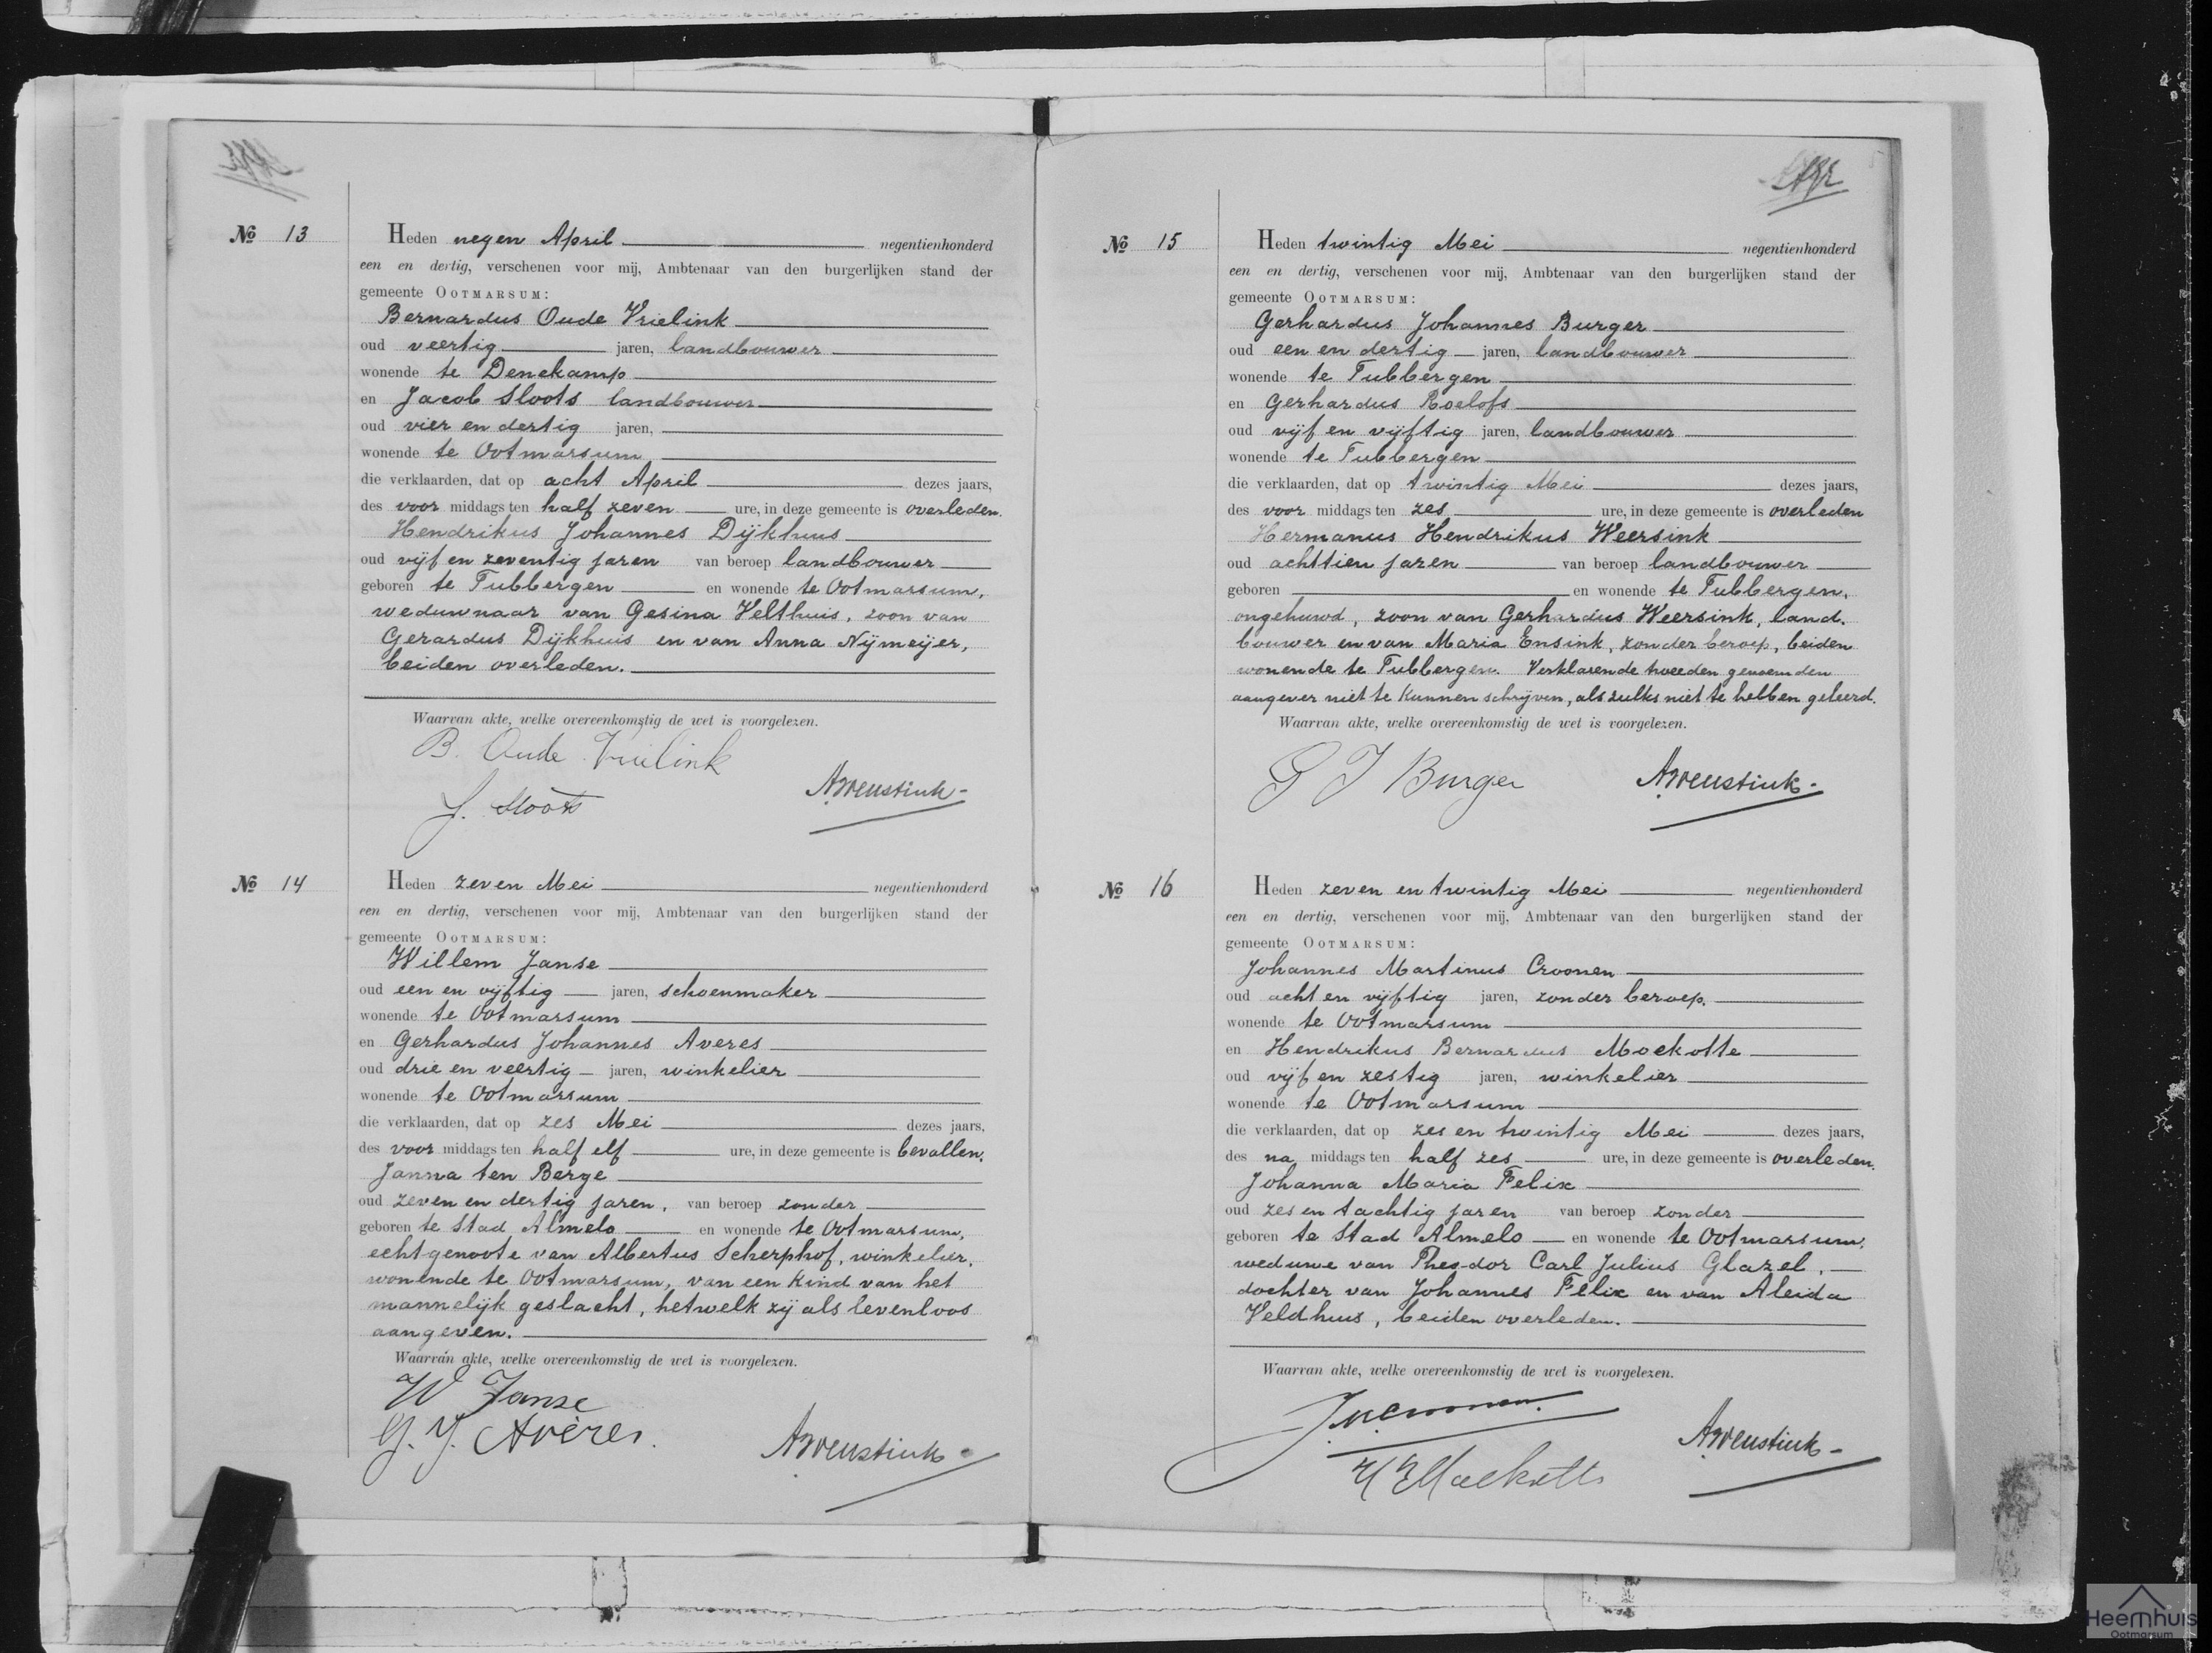 No 13
Heden negen April negentienhonderd
een en dertig, verschenen voor mij, Ambtenaar van den burgerlijken stand der
gemeente OOTMARSUM:
Bernardus Oude Vrielink
oud veertig jaren, landbouwer
wonende te Denekamp
en Jacob Sloots landbouwer
oud vier en dertig jaren,
wonende te Ootmarsum
die verklaarden, dat op acht April dezes jaars,
des voor middags ten half zeven ure, in deze gemeente is overleden.
Hendrikus Johannes Dijkhuis
oud vijf en zeventig jaren van beroep landbouwer
geboren te Tubbergen en wonende te Ootmarsum,
weduwnaar van Gesina Velthuis, zoon van
Gerardus Dijkhuis en van Anna Nijmeijer,
beiden overleden.
Waarvan akte, welke overeenkomstig de wet is voorgelezen.
B. Oude Vrielink
J. Sloots
No 14
Heden zeven Mei negentienhonderd
een en dertig, verschenen voor mij, Ambtenaar van den burgerlijken stand der
gemeente OOTMARSUM:
Willem Janse
oud een en vijftig jaren, schoenmaker
wonende te Ootmarsum
en Gerhardus Johannes Averes
oud drie en veertig jaren, winkelier
wonende te Ootmarsum
die verklaarden, dat op zes Mei dezes jaars,
des voor middags ten half elf ure, in deze gemeente is bevallen.
Janna ten Berge
oud zeven en dertig jaren, van beroep zonder
geboren te Stad Almelo en wonende te Ootmarsum,
echtgenoote van Albertus Scherphof, winkelier,
wonende te Ootmarsum, van een kind van het
mannelijk geslacht, hetwelk zij als levenloos
aangeven.
Waarvan akte, welke overeenkomstig de wet is voorgelezen.
W Janse
G. J. Avères.
No 15
Heden twintig Mei negentienhonderd
een en dertig, verschenen voor mij, Ambtenaar van den burgerlijken stand der
gemeente OOTMARSUM:
Gerhardus Johannes Burger
oud een en dertig jaren, landbouwer
wonende te Tubbergen
en Gerhardus Roelofs
oud vijf en vijftig jaren, landbouwer
wonende te Tubbergen
die verklaarden, dat op twintig Mei dezes jaars,
des voor middags ten zes ure, in deze gemeente is overleden
Hermanus Hendrikus Weersink
oud achttien jaren van beroep landbouwer
geboren en wonende te Tubbergen,
ongehuwd, zoon van Gerhardus Weersink, land-
bouwer en van Maria Ensink, zonder beroep, beiden
wonende te Tubbergen. Verklarende tweeden genoemden
aangever niet te kunnen schrijven, als zulks niet te hebben geleerd.
Waarvan akte, welke overeenkomstig de wet is voorgelezen.
G J Burger
No 16
Heden zeven en twintig Mei negentienhonderd
een en dertig, verschenen voor mij, Ambtenaar van den burgerlijken stand der
gemeente OOTMARSUM:
Johannes Martinus Croonen
oud acht en vijftig jaren, zonder beroep.
wonende te Ootmarsum
en Hendrikus Bernardus Mockotte
oud vijf en zestig jaren, winkelier
wonende te Ootmarsum
die verklaarden, dat op zes en twintig Mei dezes jaars,
des na middags ten half zes ure, in deze gemeente is overleden.
Johanna Maria Felix
oud zes en tachtig jaren van beroep zonder
geboren te Stad Almelo en wonende te Ootmarsum,
weduwe van Theodor Carl Julius Glazel,
dochter van Johannes Felix en van Aleida
Veldhuis, beiden overleden.
Waarvan akte, welke overeenkomstig de wet is voorgelezen.
Heemhuis
Ootmarsum